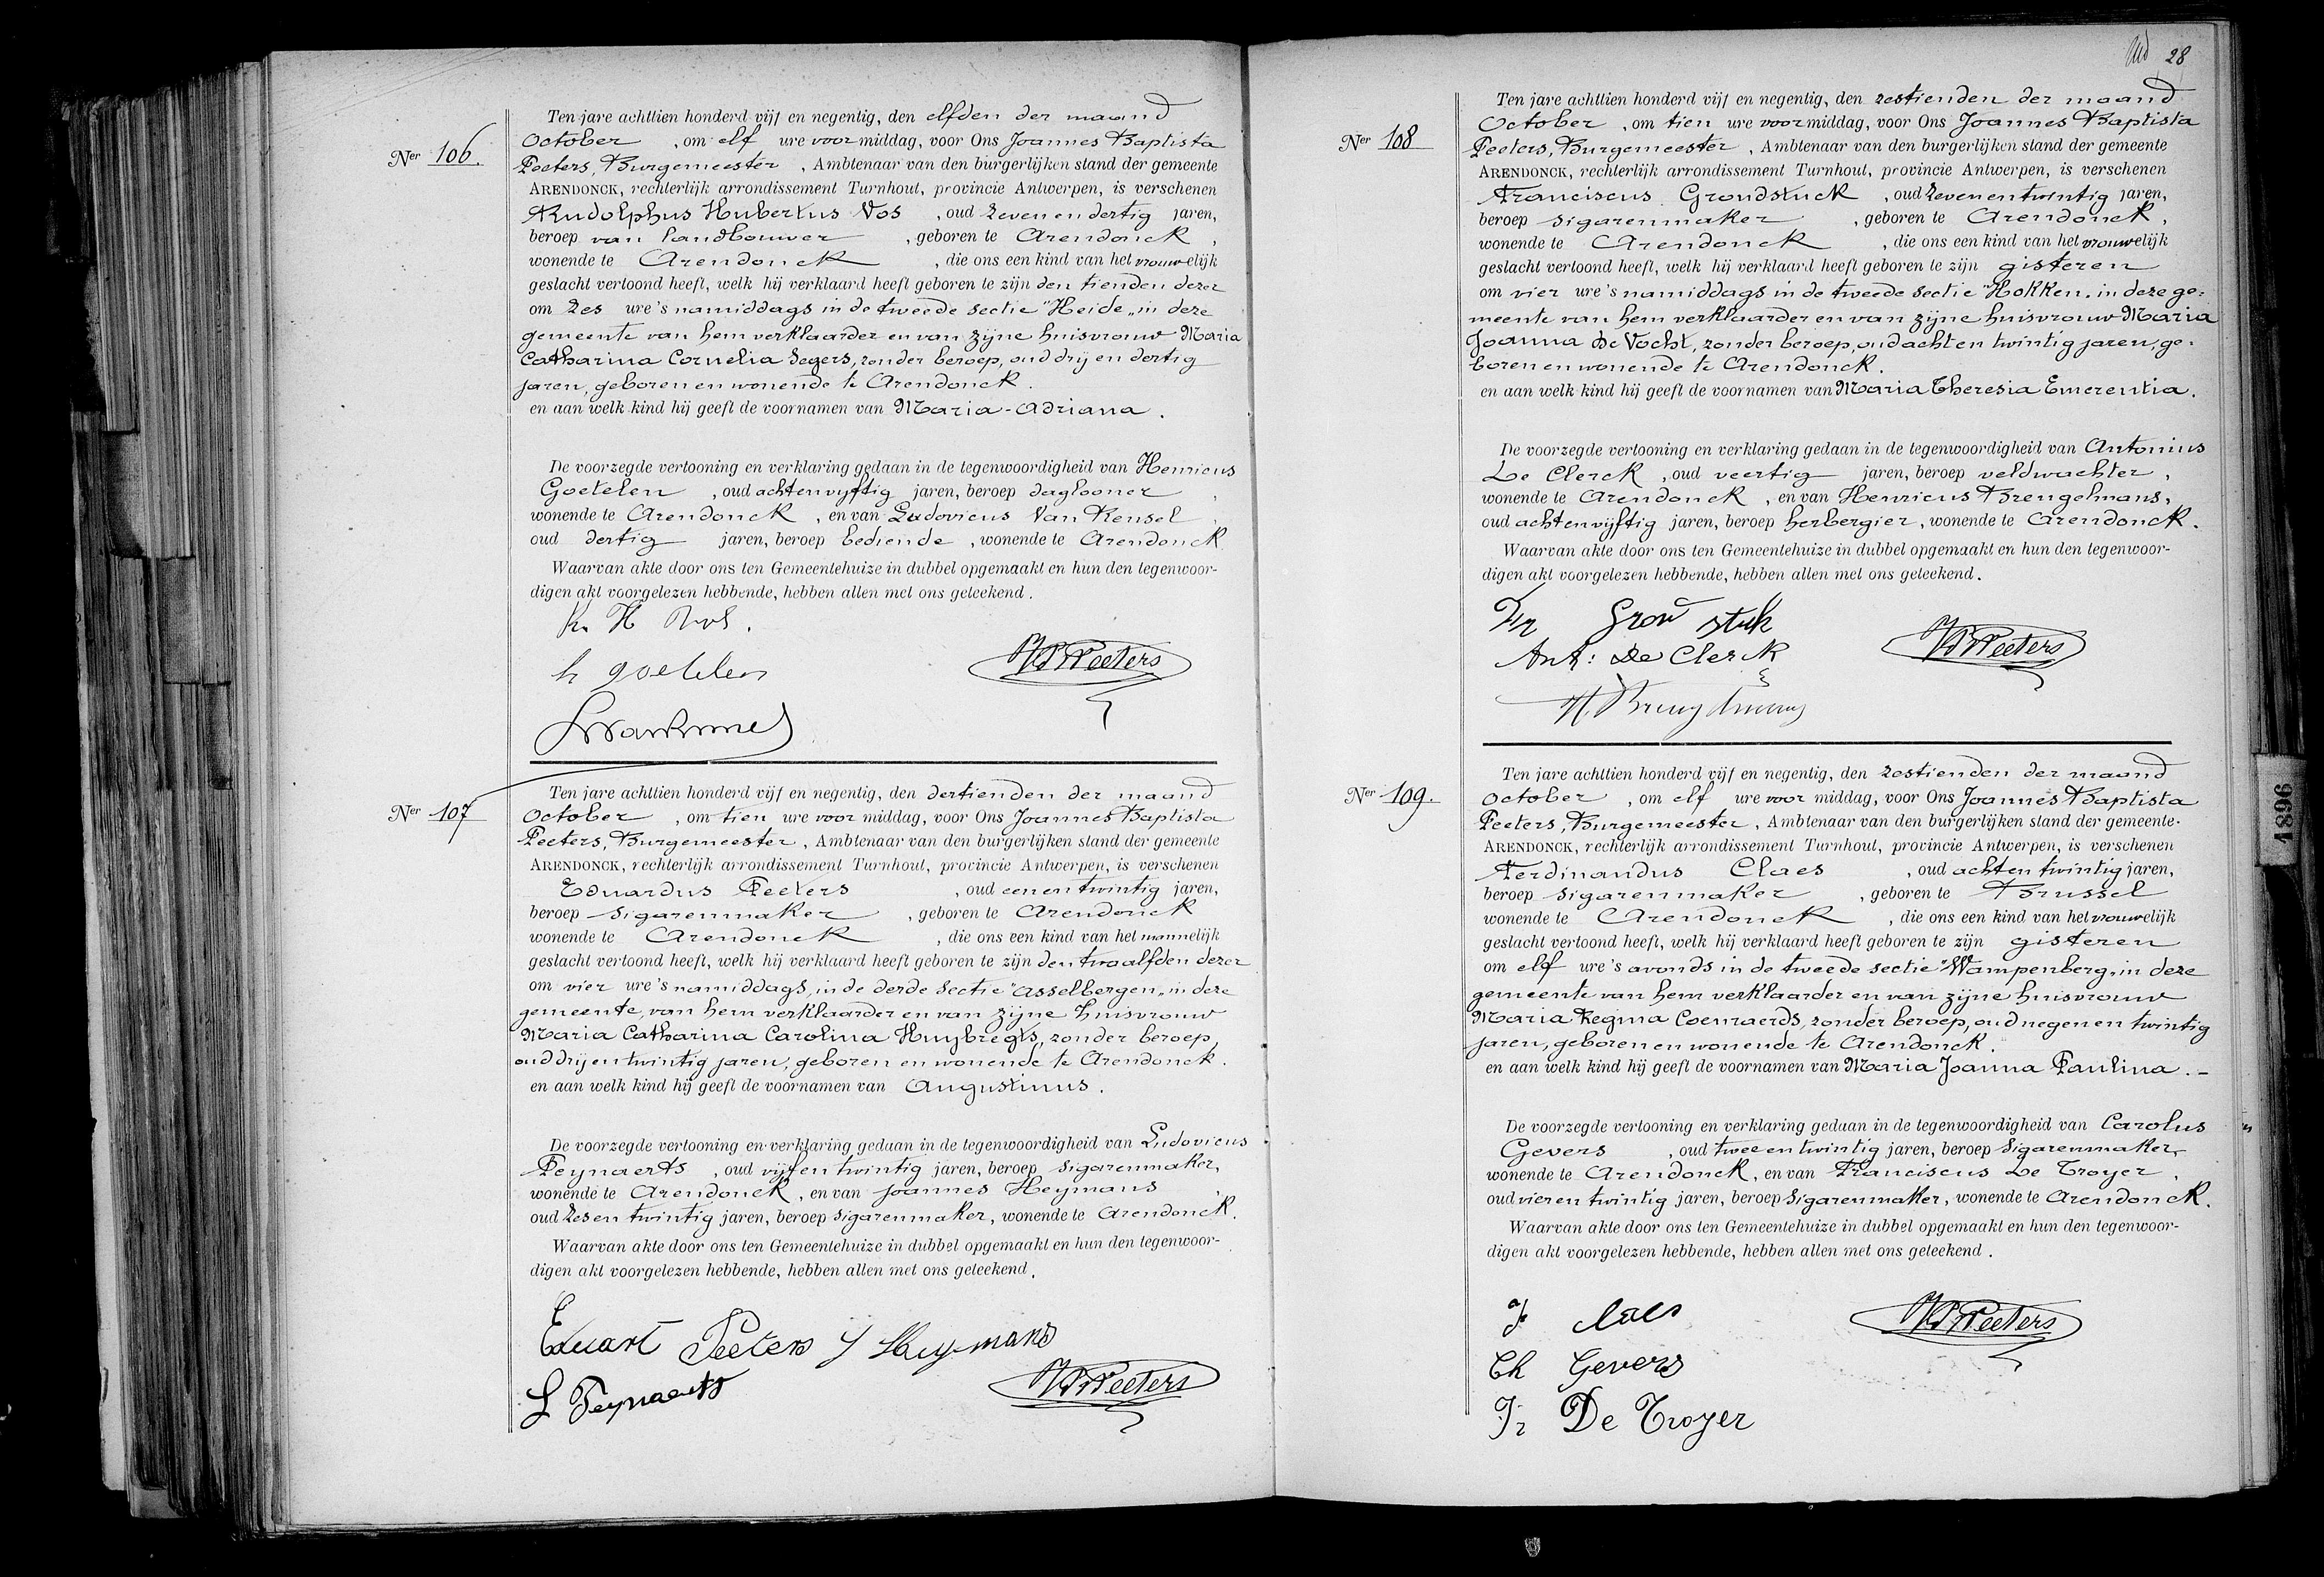 Ner 106.
Ten jare achttien honderd vijf en negentig, den elfden der maand
October , om elf ure voor middag, voor Ons Joannes Baptista
Peeters, Burgemeester , Ambtenaar van den burgerlijken stand der gemeente
ARENDONCK, rechterlijk arrondissement Turnhout, provincie Antwerpen, is verschenen
Rudolphus Hubertus Vos , oud zeven en dertig jaren,
beroep van landbouwer , geboren te Arendonck ,
wonende te Arendonck , die ons een kind van het vrouwelijk
geslacht vertoond heeft, welk hij verklaard heeft geboren te zijn den tienden dezer
om zes ure 's namiddags in de tweede sectie "Heide" in deze
gemeente van hem verklaarder en van zijne huisvrouw Maria
Catharina Cornelia Segers, zonder beroep, oud drij en dertig
jaren, geboren en wonende te Arendonck.
en aan welk kind hij geeft de voornamen van Maria-Adriana.
De voorzegde vertooning en verklaring gedaan in de tegenwoordigheid van Henricus
Goetelen , oud achtenvyftig jaren, beroep daglooner ,
wonende te Arendonck , en van Ludovicus Van Rensel ,
oud dertig jaren, beroep bediende , wonende te Arendonck
Waarvan akte door ons ten Gemeentehuize in dubbel opgemaakt en hun den tegenwoor-
digen akt voorgelezen hebbende, hebben allen met ons geteekend.
R. H Vos.
h goetelen
JB Peeters
Ner 107
Ten jare achttien honderd vijf en negentig, den dertienden der maand
October , om tien ure voor middag, voor Ons Joannes Baptista
Peeters, Burgemeester , Ambtenaar van den burgerlijken stand der gemeente
ARENDONCK, rechterlijk arrondissement Turnhout, provincie Antwerpen, is verschenen
Eduardus Peeters , oud een en twintig jaren,
beroep sigarenmaker , geboren te Arendonck
wonende te Arendonck , die ons een kind van het mannelijk
geslacht vertoond heeft, welk hij verklaard heeft geboren te zijn den twaalfden dezer
om vier ure 's namiddags, in de derde sectie "Asselbergen" in deze
gemeente, van hem verklaarder en van zijne huisvrouw
Maria Catharina Carolina Huybregts, zonder beroep,
oud drij en twintig jaren, geboren en wonende te Arendonck.
en aan welk kind hij geeft de voornamen van Augustinus.
De voorzegde vertooning en verklaring gedaan in de tegenwoordigheid van Ludovicus
Peynaerts , oud vijf en twintig jaren, beroep sigarenmaker,
wonende te Arendonck , en van Joannes Heymans ,
oud zes en twintig jaren, beroep sigarenmaker, wonende te Arendonck.
Waarvan akte door ons ten Gemeentehuize in dubbel opgemaakt en hun den tegenwoor-
digen akt voorgelezen hebbende, hebben allen met ons geteekend.
Eduart Peeters J Heymans
L Peynaerts
JB Peeters
28
Ner 108
Ten jare achttien honderd vijf en negentig, den zestienden der maand
October , om tien ure voor middag, voor Ons Joannes Baptista
Peeters, Burgemeester , Ambtenaar van den burgerlijken stand der gemeente
ARENDONCK, rechterlijk arrondissement Turnhout, provincie Antwerpen, is verschenen
Franciscus Grondstuck , oud zeven en twintig jaren,
beroep sigarenmaker , geboren te Arendonck ,
wonende te Arendonck , die ons een kind van het vrouwelijk
geslacht vertoond heeft, welk hij verklaard heeft geboren te zijn gisteren
om vier ure 's namiddags in de tweede sectie "Hokken" in deze ge-
meente van hem verklaarder en van zijne huisvrouw Maria
Joanna De Vocht, zonder beroep, oud acht en twintig jaren, ge-
boren en wonende te Arendonck.
en aan welk kind hij geeft de voornamen van Maria Theresia Emerentia.
De voorzegde vertooning en verklaring gedaan in de tegenwoordigheid van Antonius
De Clerck , oud veertig jaren, beroep veldwachter ,
wonende te Arendonck , en van Henricus Brengelmans,
oud achtenvyftig jaren, beroep herbergier , wonende te Arendonck.
Waarvan akte door ons ten Gemeentehuize in dubbel opgemaakt en hun den tegenwoor-
digen akt voorgelezen hebbende, hebben allen met ons geteekend.
Fr Gronstuk
Ant: De Clerck
H. Brengelmans
JB Peeters
Ner 109.
Ten jare achttien honderd vijf en negentig, den zestienden der maand
October , om elf ure voor middag, voor Ons Joannes Baptista
Peeters, Burgemeester , Ambtenaar van den burgerlijken stand der gemeente
ARENDONCK, rechterlijk arrondissement Turnhout, provincie Antwerpen, is verschenen
Ferdinandus Claes , oud acht en twintig jaren,
beroep sigarenmaker , geboren te Brussel
wonende te Arendonck , die ons een kind van het vrouwelijk
geslacht vertoond heeft, welk hij verklaard heeft geboren te zijn gisteren
om elf ure 's avonds in de tweede sectie "Wampenberg" in deze
gemeente van hem verklaarder en van zijne huisvrouw
Maria Regina Coenraerds, zonder beroep, oud negen en twintig
jaren, geboren en wonende te Arendonck.
en aan welk kind hij geeft de voornamen van Maria Joanna Paulina.-
De voorzegde vertooning en verklaring gedaan in de tegenwoordigheid van Carolus
Gevers , oud twee en twintig jaren, beroep sigarenmaker,
wonende te Arendonck, en van Franciscus De Troyer ,
oud vier en twintig jaren, beroep sigarenmaker, wonende te Arendonck.
Waarvan akte door ons ten Gemeentehuize in dubbel opgemaakt en hun den tegenwoor-
digen akt voorgelezen hebbende, hebben allen met ons geteekend.
F Claes
Ch Gevers
Fr De Troyer
JB Peeters
1896